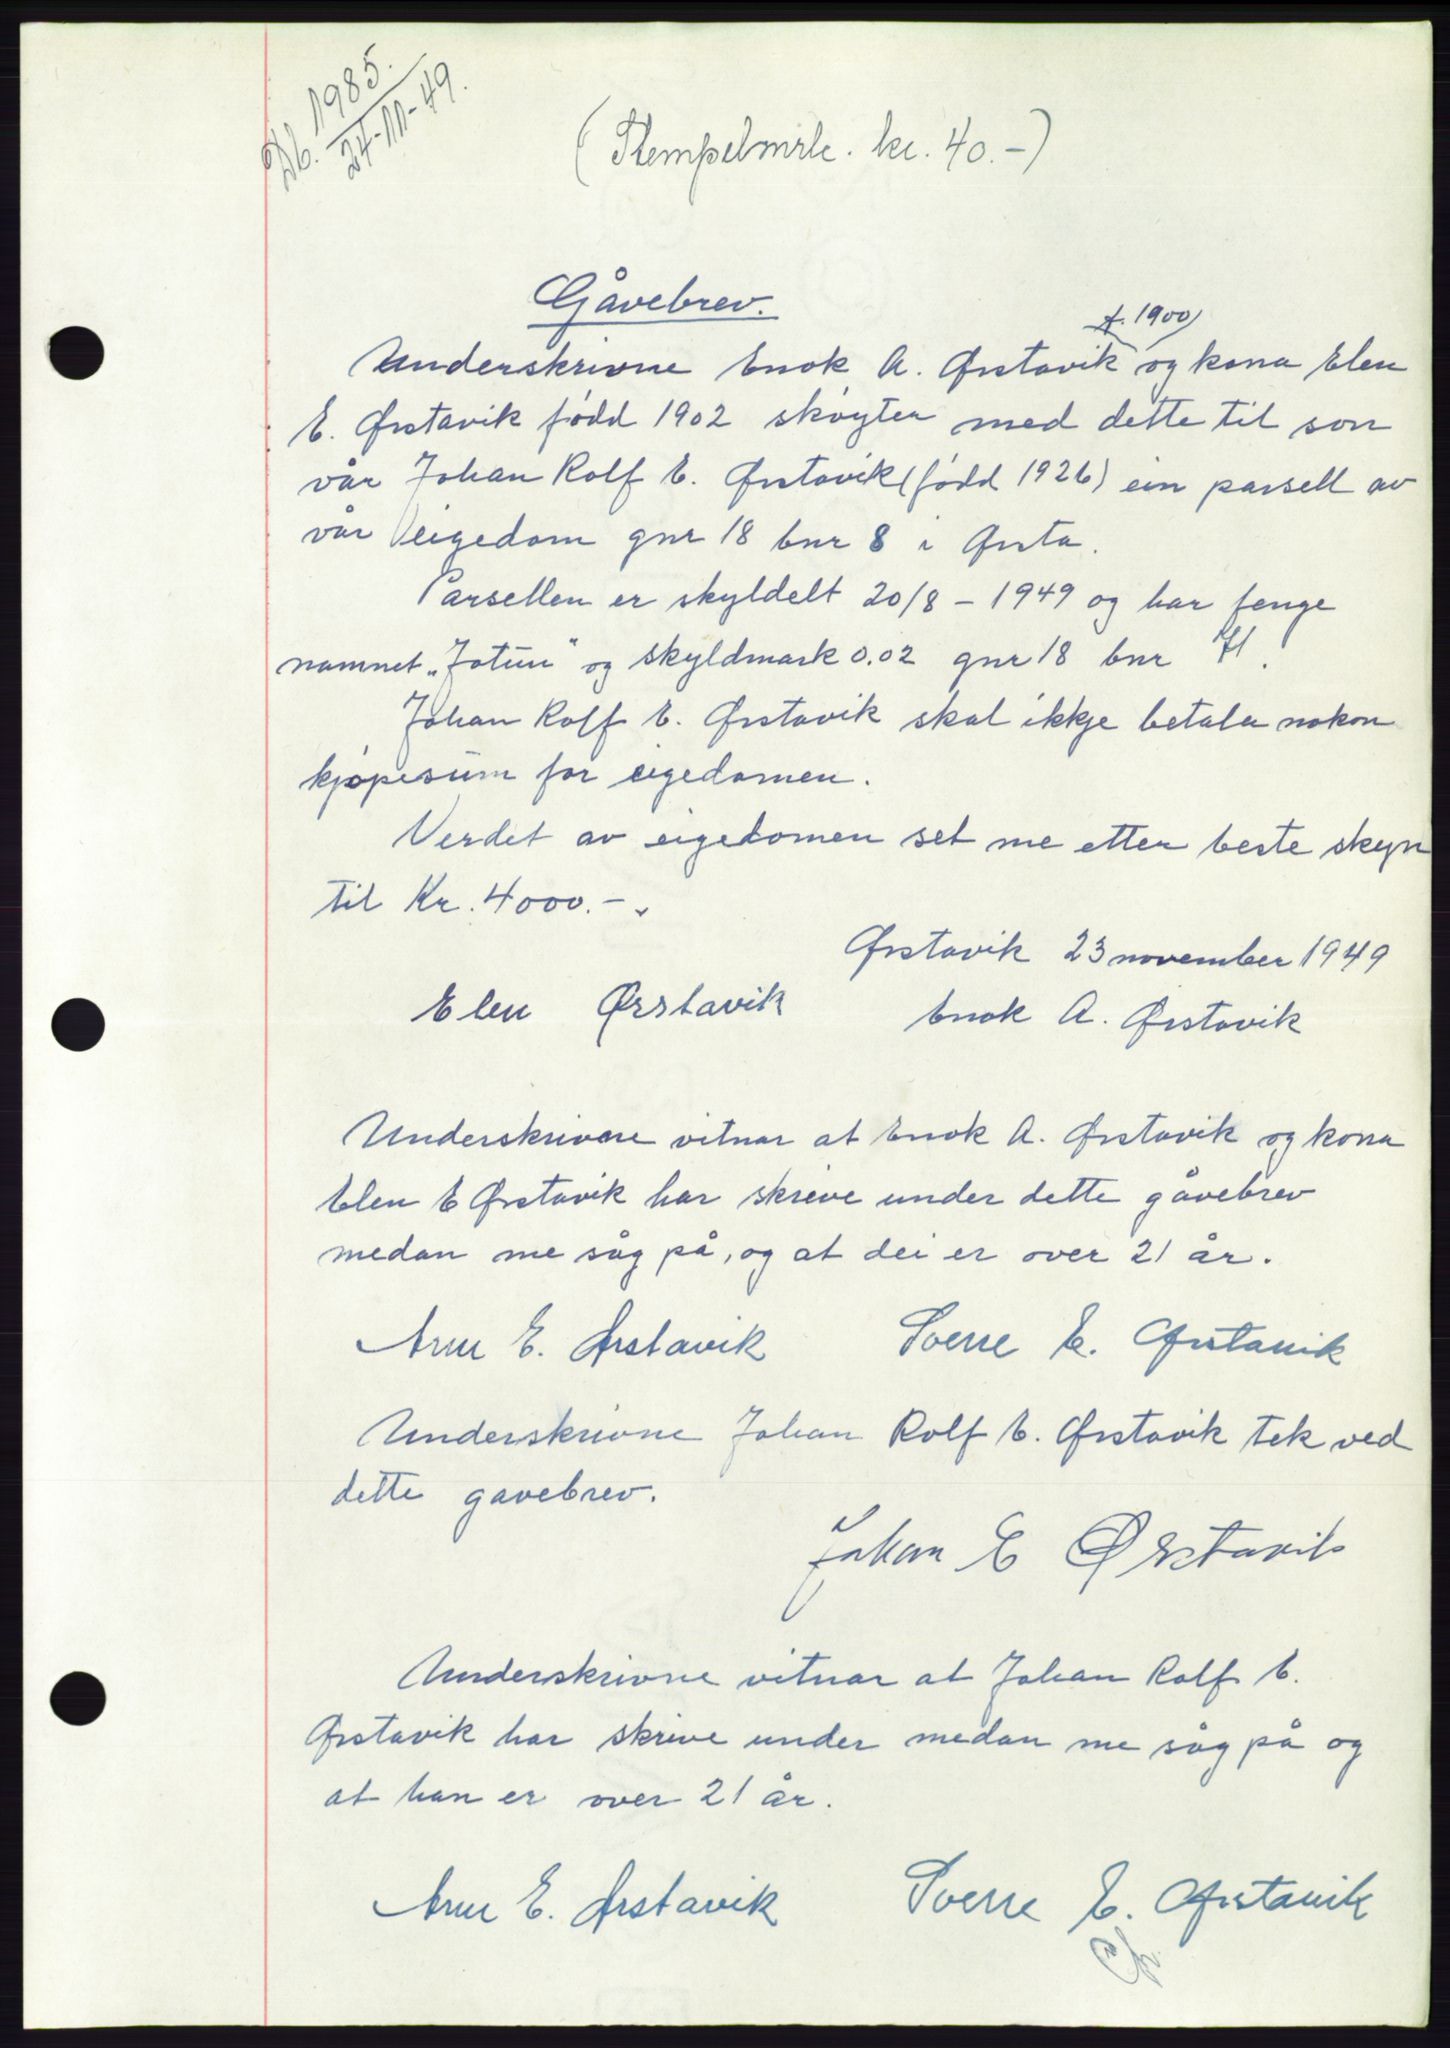 Db. 1985.
24-11-49.
(Stempelmrk. kr. 40.-)
Gåvebrev.
f. 1900)
Underskrivne Enok A. Ørstavik og kona Elen
E. Ørstavik född 1902 skøyter med dette til son
vår Johan Rolf E. Ørstavik (född 1926) ein parsell av
vår eigedom gnr 18 bnr 8 i Ørsta.
Parsellen er skyldelt 20/8 - 1949 og har fenge
namnet „Jotun" og skyldmark 0.02 gnr 18 bnr 71.
Johan Rolf E. Ørstavik skal ikkje betala nokon
kjøpesum for eigedomen.
Verdet av eigedomen set me etter beste skyn
til Kr. 4000.-.
Ørstavik 23 november 1949
Elen Ørstavik Enok A. Ørstavik
Underskrivne vitnar at Enok A. Ørstavik og kona
Elen E Ørstavik har skrive under dette gåvebrev
medan me såg på, og at dei er over 21 år.
Arne E. Ørstavik Sverre E. Ørstavik
Underskrivne Johan Rolf E. Ørstavik tek ved
dette gavebrev.
Johan E Ørstavik
Underskrivne vitnar at Johan Rolf E.
Ørstavik har skrive under medan me såg på og
at han er over 21 år.
Arne E. Ørstavik Sverre E. Ørstavik